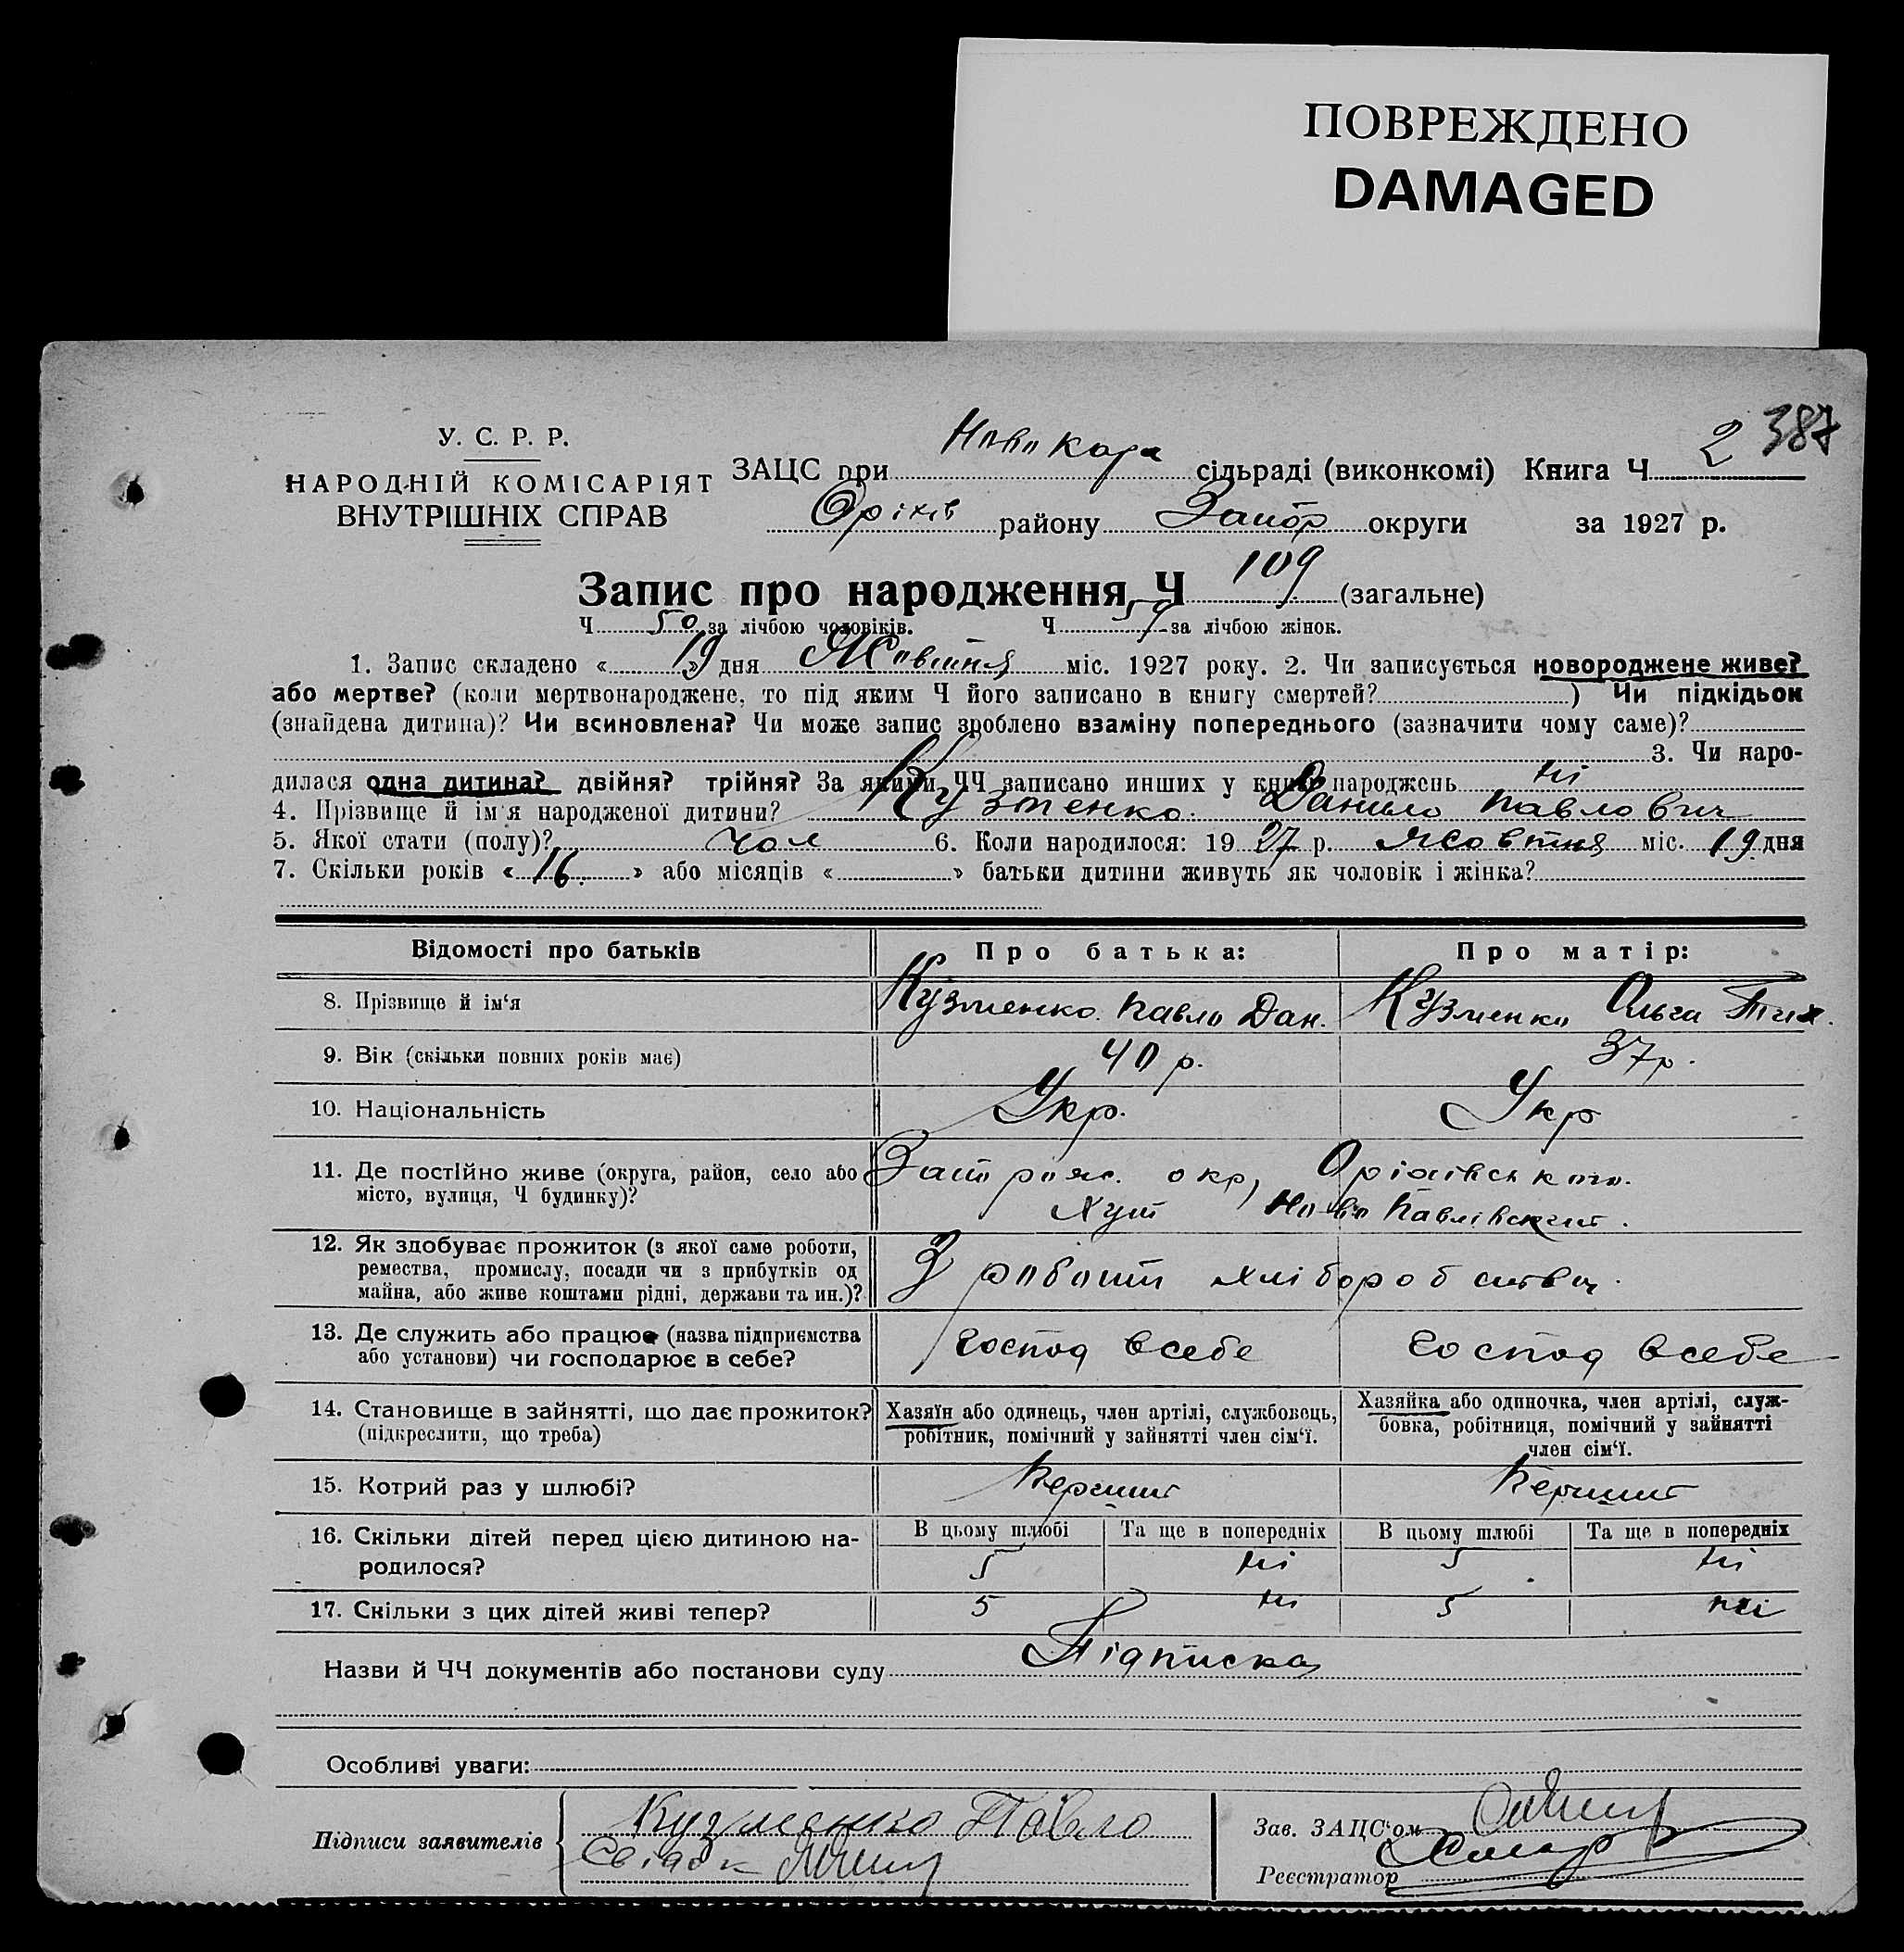 ПОВРЕЖДЕНО
DAMAGED
387
У. С. Р. Р.
НАРОДНІЙ КОМІСАРІЯТ
ВНУТРІШНІХ СПРАВ
ЗАЦС при Новокара сільраді (виконкомі) Книга Ч 2
Оріхів району Запор округи за 1927 р.
Запис про народження Ч 109 (загальне)
Ч 50 за лічбою чоловіків. Ч 59 за лічбою жінок.
1. Запис складено « 19 » дня Жовтня міс. 1927 року. 2. Чи записується новороджене живе?
або мертве? (коли мертвонароджене, то під яким Ч його записано в книгу смертей? ) Чи підкідьок
(знайдена дитина)? Чи всиновлена? Чи може запис зроблено взаміну попереднього (зазначити чому саме)?
3. Чи наро-
дилася одна дитина? двійня? трійня? За якими ЧЧ записано инших у книзі народжень ні
4. Прізвище й ім'я народженої дитини? Кузменко. Данило Павлович
5. Якої стати (полу)? чол 6. Коли народилося: 19 27 р. Жовтня міс. 19 дня
7. Скільки років « 16. » або місяців « » батьки дитини живуть як чоловік і жінка?
Відомості про батьків Про батька: Про матір:
8. Прізвище й ім'я Кузменко Павло Дан. Кузменко Ольга Тих.
9. Вік (скільки повних років має) 40 р. 37 р.
10. Національність Укр. Укр
11. Де постійно живе (округа, район, село або Запорож. окр, Оріхівського.
місто, вулиця, Ч будинку)? Хут Ново Павлівський.
12. Як здобуває прожиток (з якої саме роботи,
ремества, промислу, посади чи з прибутків од З работи хліборобства.
майна, або живе коштами рідні, держави та ин.)?
13. Де служить або працює (назва підприємства Господ всебе Господ всебе
або установи) чи господарює в себе?
14. Становище в зайнятті, що дає прожиток? Хазяїн або одинець, член артілі, службовець, Хазяйка або одиночка, член артілі, служ-
(підкреслити, що треба) робітник, помічний у зайнятті член сім'ї. бовка, робітниця, помічний у зайнятті
член сім'ї.
15. Котрий раз у шлюбі? Перший Перший
16. Скільки дітей перед цією дитиною на- В цьому шлюбі Та ще в попередніх В цьому шлюбі Та ще в попередніх
родилося? 5 ні 5 ні
17. Скільки з цих дітей живі тепер? 5 ні 5 ні
Назви й ЧЧ документів або постанови суду Підписка
Особливі уваги:
Підписи заявителів Кузменко Павло
Свідок
Зав. ЗАЦС'ом
Реєстратор